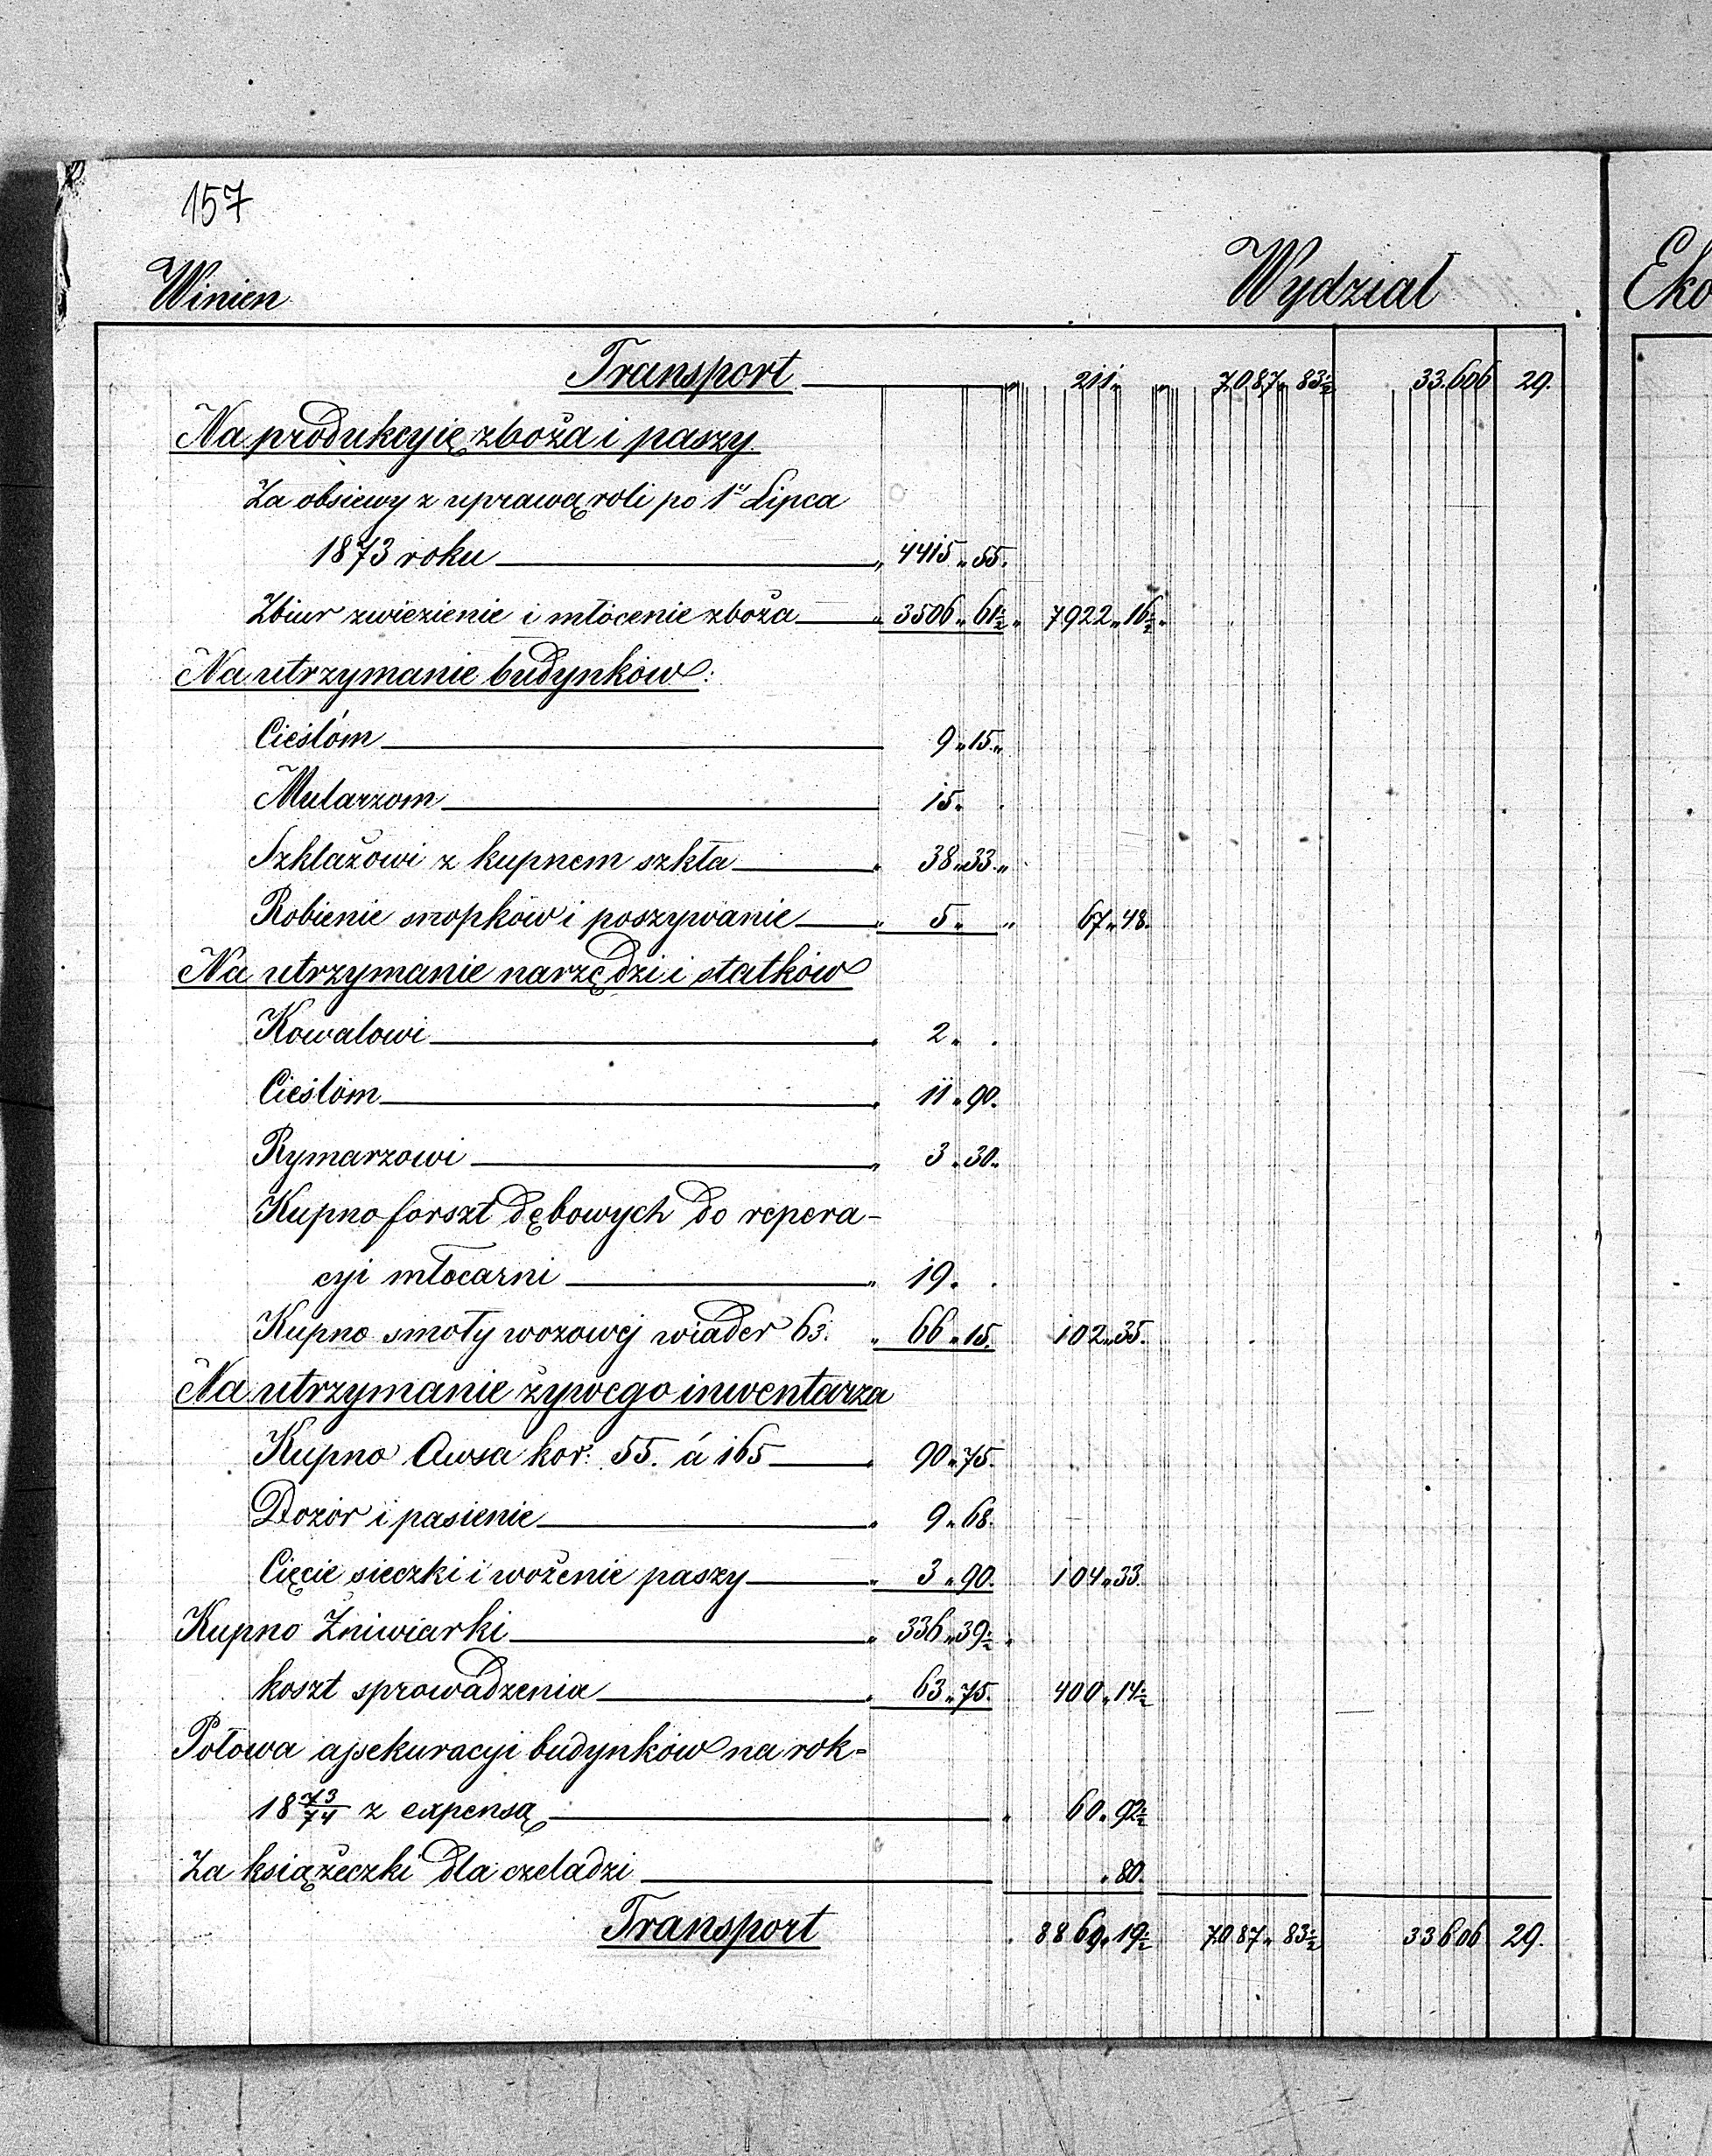 157
Winien Wydział Eko
Transport „ 211 „ „ 7087 „ 83½ 33.606 29.
Na produkcyię zboża i paszy.
Za obsiewy z uprawą roli po 1" Lipca
1873 roku „ 4415 „ 55.
Zbiur zwiezienie i młócenie zboża „ 3506 „ 61½ „ 7922 „ 16½ „
Na utrzymanie budynków:
Cieślóm 9 „ 15 „
Mularzom 15 „
Szklażowi z kupnem szkła „ 38 „ 33 „
Robienie snopków i poszywanie „ 5 „ „ 67 „ 48.
Na utrzymanie narzędzi i statków
Kowalowi „ 2 „ .
Cieślóm „ 11 „ 90.
Rymarzowi „ 3 „ 30 „
Kupno forszt dębowych do repera-
cyi młocarni „ 19 . .
Kupno smoły wozowej wiader 63. „ 66 „ 15. 102 „ 35.
Na utrzymanie żywego inwentarza
Kupno Owsa kor: 55. á 165 „ 90 „ 75.
Dozór i pasienie „ 9 „ 68.
Cięcie sieczki i wożenie paszy „ 3 „ 90. 104 „ 33.
Kupno Żniwiarki „ 336 „ 39½ „
koszt sprowadzenia „ 63 „ 75. 400 „ 14½
Połowa assekuracyi budynków na rok=
18 73/74 z expensą „ 60 „ 92½
Za książeczki dla czeladzi „ 80.
Transport . 8869 „ 19½ 7087 „ 83½ 33606 29.